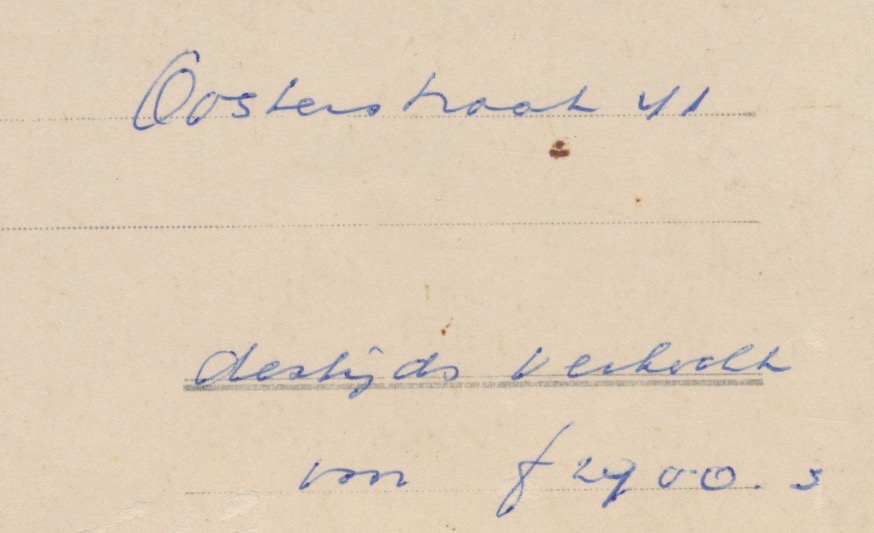 Oosterstraat 41
destijds verkocht
voor f 2900.